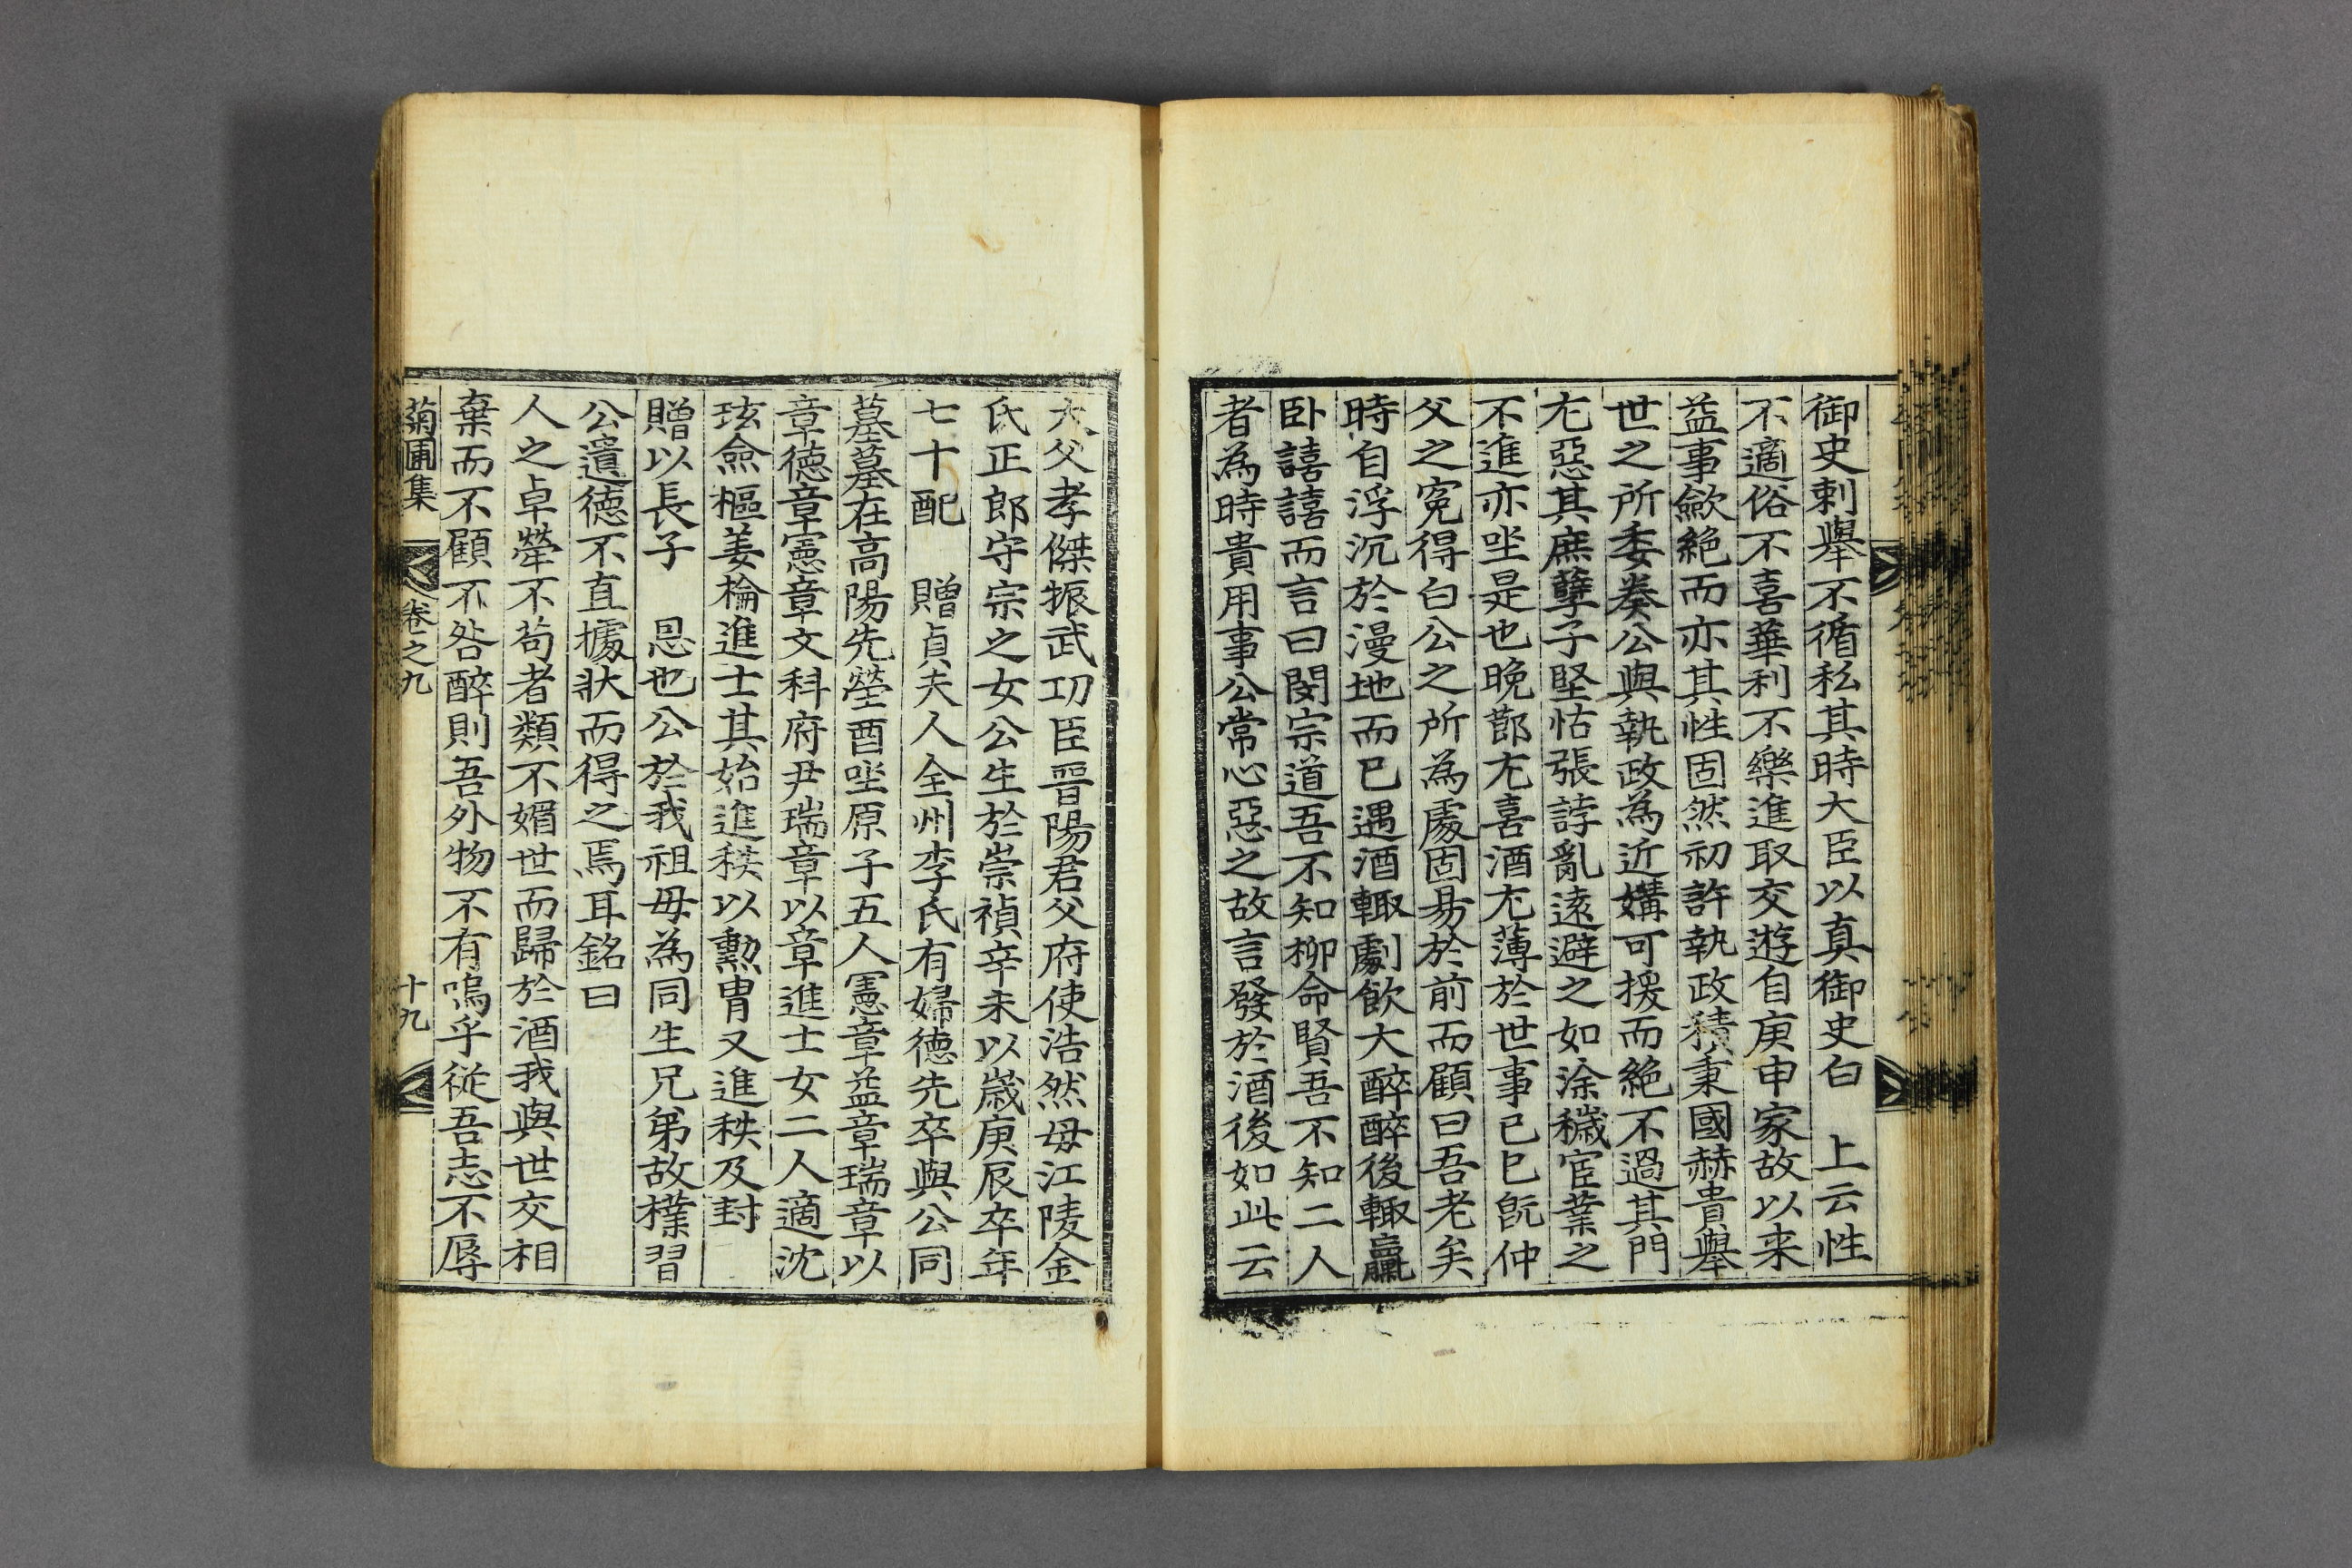 御史剌舉不循私其時大臣以真御史白 上云性
不適俗不喜華利不樂進取交遊自庚申家故以来
益事歛絶而亦其性固然初許執政積秉國赫貴舉
世之所委奏公與執政為近媾可援而絶不過其門
尤惡其庶孽子堅怙張誖亂遠避之如涂穢宦業之
不進亦坐是也晩莭尤喜酒尤薄於世事已已旣仲
父之寃得白公之所為處固易於前而顧曰吾老矣
時自浮沉於漫地而已遇酒輙劇飮大醉醉後輙贏
卧譆譆而言曰閔宗道吾不知柳命賢吾不知二人
者為時貴用事公常心惡之故言發於酒後如此云
大父孝傑振武功臣晋陽君父府使浩然母江陵金
氏正郎守宗之女公生於崇禎辛未以歲庚辰卒年
七十配 贈貞夫人全州李氏有婦德先卒與公同
墓墓在高陽先塋酉坐原子五人憲章益章瑞章以
章德章憲章文科府尹瑞章以章進士女二人適沈
玹僉樞姜棆進士其始進秩以勲冑又進秩及封
贈以長子 恩也公於我祖母為同生兄弟故樸習
公遺德不直據狀而得之焉耳銘曰
人之卓犖不苟者類不媚世而歸於酒我與世交相
棄而不顧不咎醉則吾外物不有嗚乎從吾志不辱
菊圃集 卷之九 十九